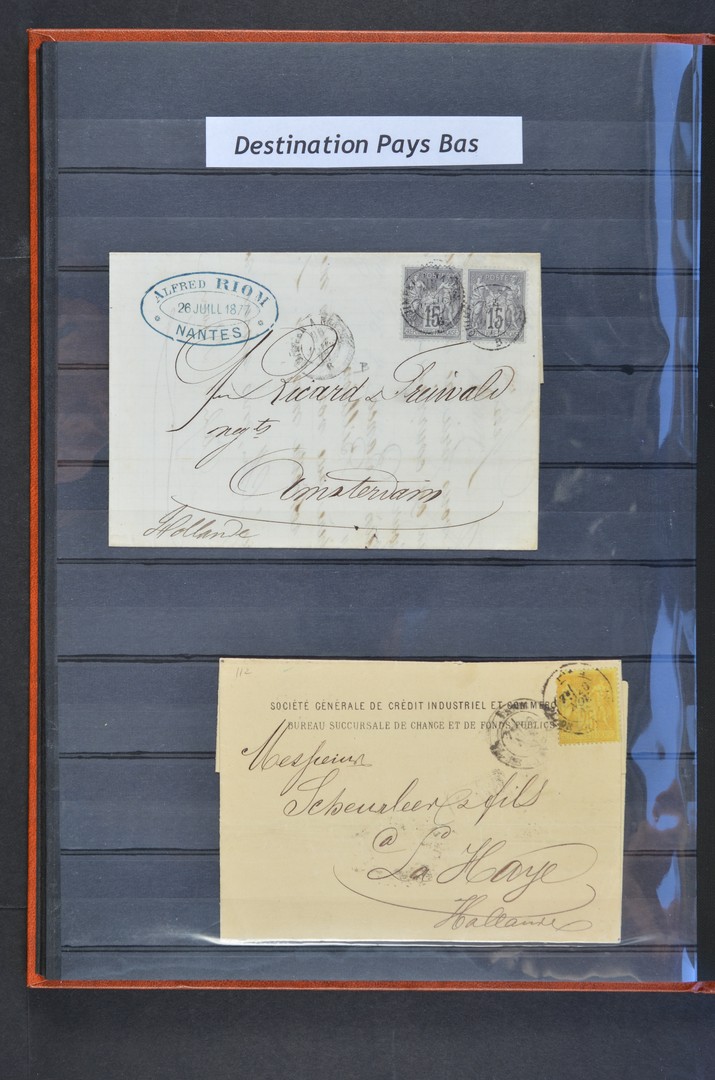 Destination Pays Bas
ALFRED RIOM
26 JUILL 1877
NANTES
15 15
Ricard &
negts
Amsterdam
Hollande
112
SOCIÉTÉ GÉNÉRALE DE CRÉDIT INDUSTRIEL ET COMMERC
BUREAU SUCCURSALE DE CHANGE ET DE FONDS PUBLICS
25
Messieurs
Scheurleer & fils
à
La Haye
Hollande